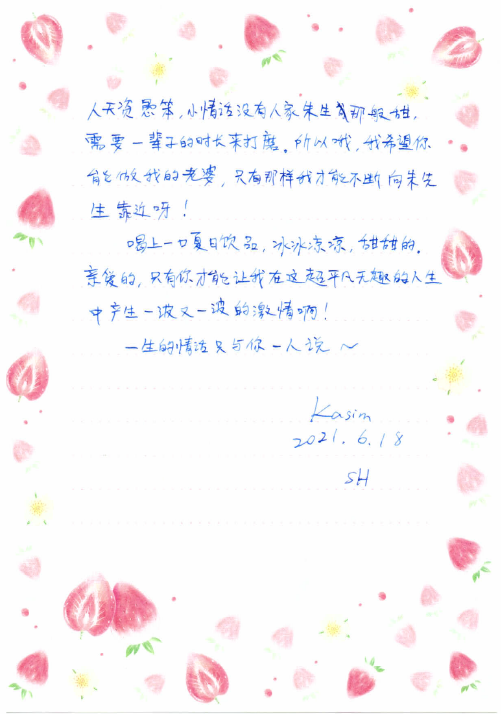 人天资愚笨,小情话没有人家朱生豪那般甜,
需要一辈子的时长来打磨。所以哦,我希望你
能做我的老婆,只有那样我才能不断向朱先
生靠近呀!
喝上一口夏日饮品,冰冰凉凉,甜甜的。
亲爱的,只有你才能让我在这超平凡无趣的人生
中产生一波又一波的激情啊!
一生的情话只与你一人说~
Kasim
2021.6.18
SH